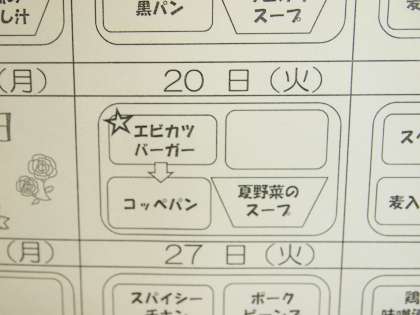 黒パン
スープ
し汁
(月)
20 日 (火)
エビカツ
バーガー
コッペパン
夏野菜の
スープ
麦入
(月)
27 日 (火)
スパイシー
チキン
ポーク
ビーンズ
鶏
味噌